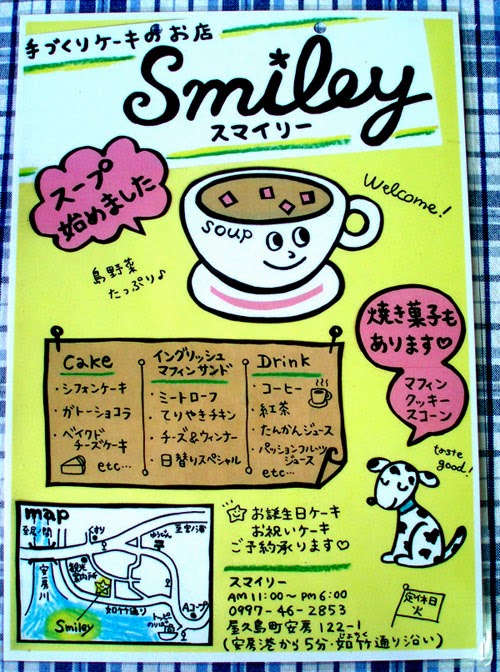 手づくりケーキのお店
Smiley
スマイリー
スープ
始めました
Welcome!
soup
島野菜
たっぷり♪
焼き菓子も
あります♡
マフィン
クッキー
スコーン
Cake
・シフォンケーキ
・ガトーショコラ
・ベイクド
チーズケーキ
etc…
イングリッシュ
マフィンサンド
・ミートローフ
・てりやきチキン
・チーズ&ウィンナー
・日替りスペシャル
Drink
・コーヒー
・紅茶
・たんかんジュース
・パッションフルーツ
ジュース
etc…
taste
good!
map
至尾之間
安房川
くすり
観光
案内所
ゆうびん
至宮之浦
如竹通り
Aコープ
Smiley
☆お誕生日ケーキ
お祝いケーキ
ご予約承ります♡
スマイリー
AM 11:00〜PM 6:00
0997-46-2853
屋久島町安房122-1
(安房港から5分・如竹通り沿い)
じょちく
定休日
火